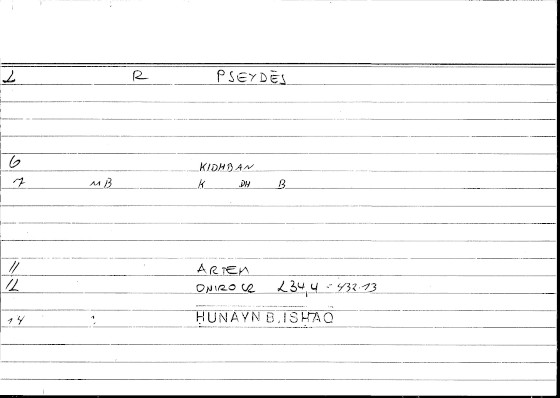 1 R PSEYDĒS
6 KIDHBAN
7 MB K DH B
11 ARTEM
12 ONIROCR 234,4 = 432.13
14 : HUNAYN B.ISHAQ